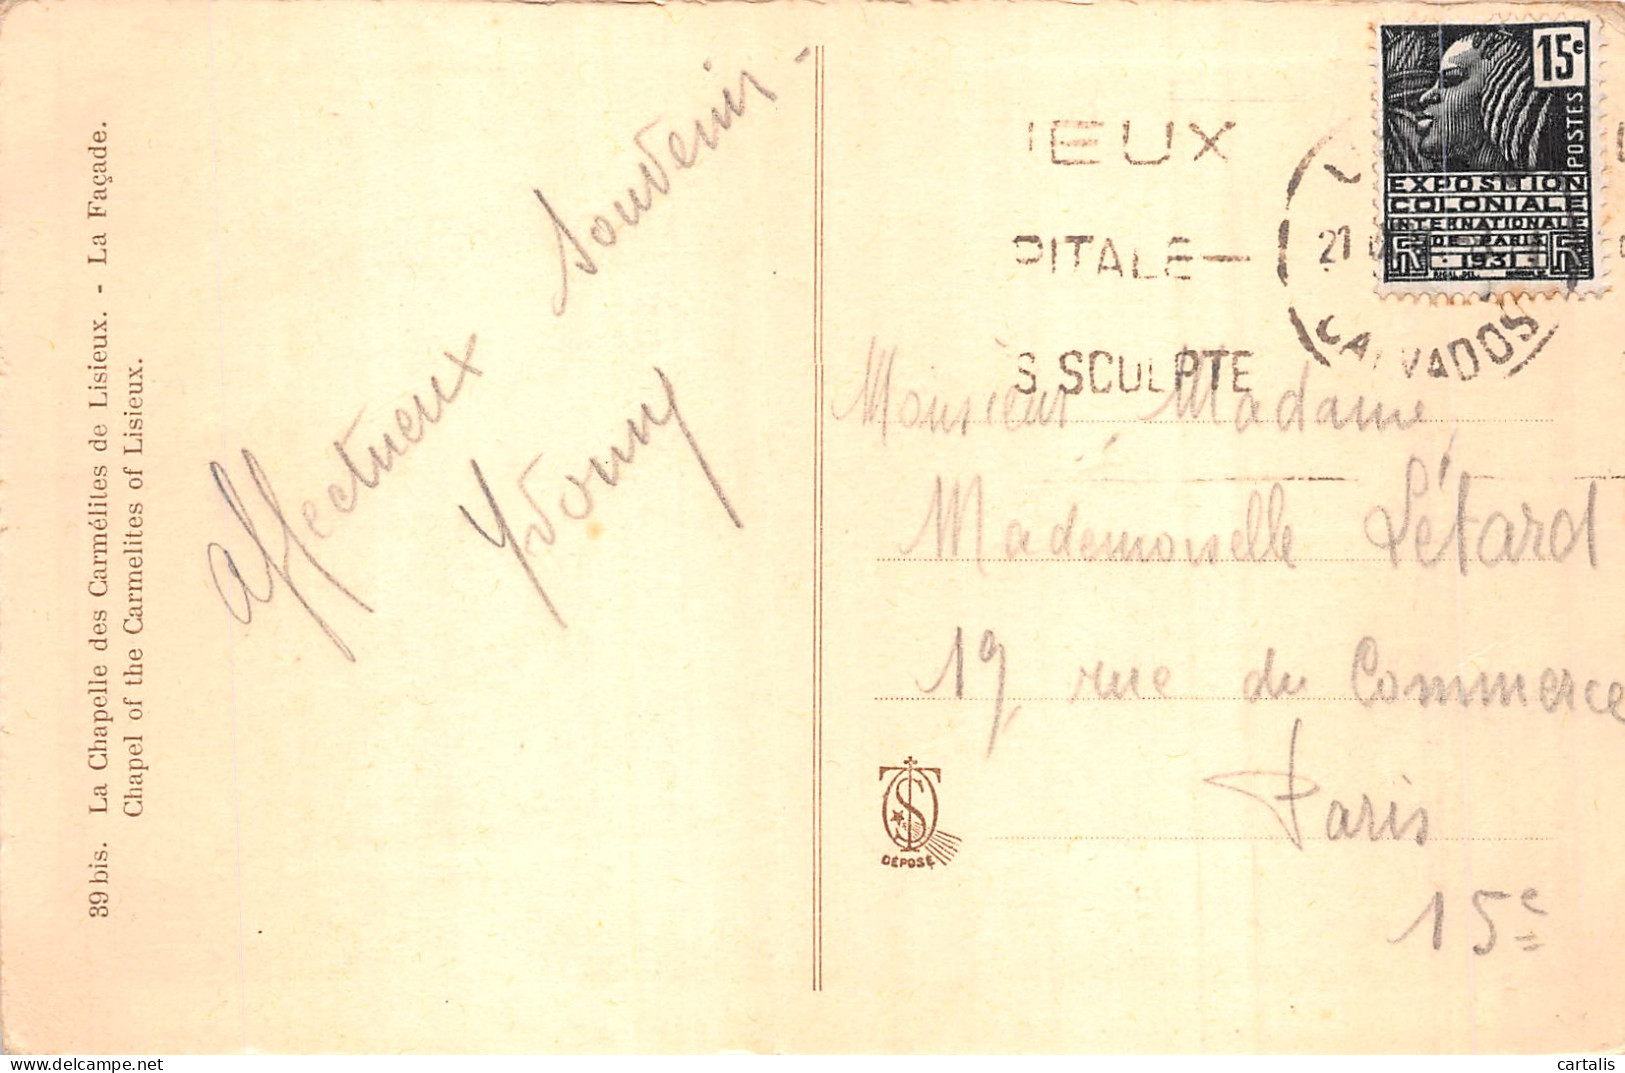 39 bis. La Chapelle des Carmélites de Lisieux. - La Façade.
Chapel of the Carmelites of Lisieux.
Affectueux Souvenir -
Yvonny
IEUX
PITALE —
S SCULPTE
21
CALVADOS
15c
POSTES
EXPOSITION
COLONIALE
INTERNATIONALE
DE PARIS
1931
Monsieur, Madame,
Mademoiselle Létard
19 rue du Commerce
Paris
15e
DÉPOSÉ
cartalis